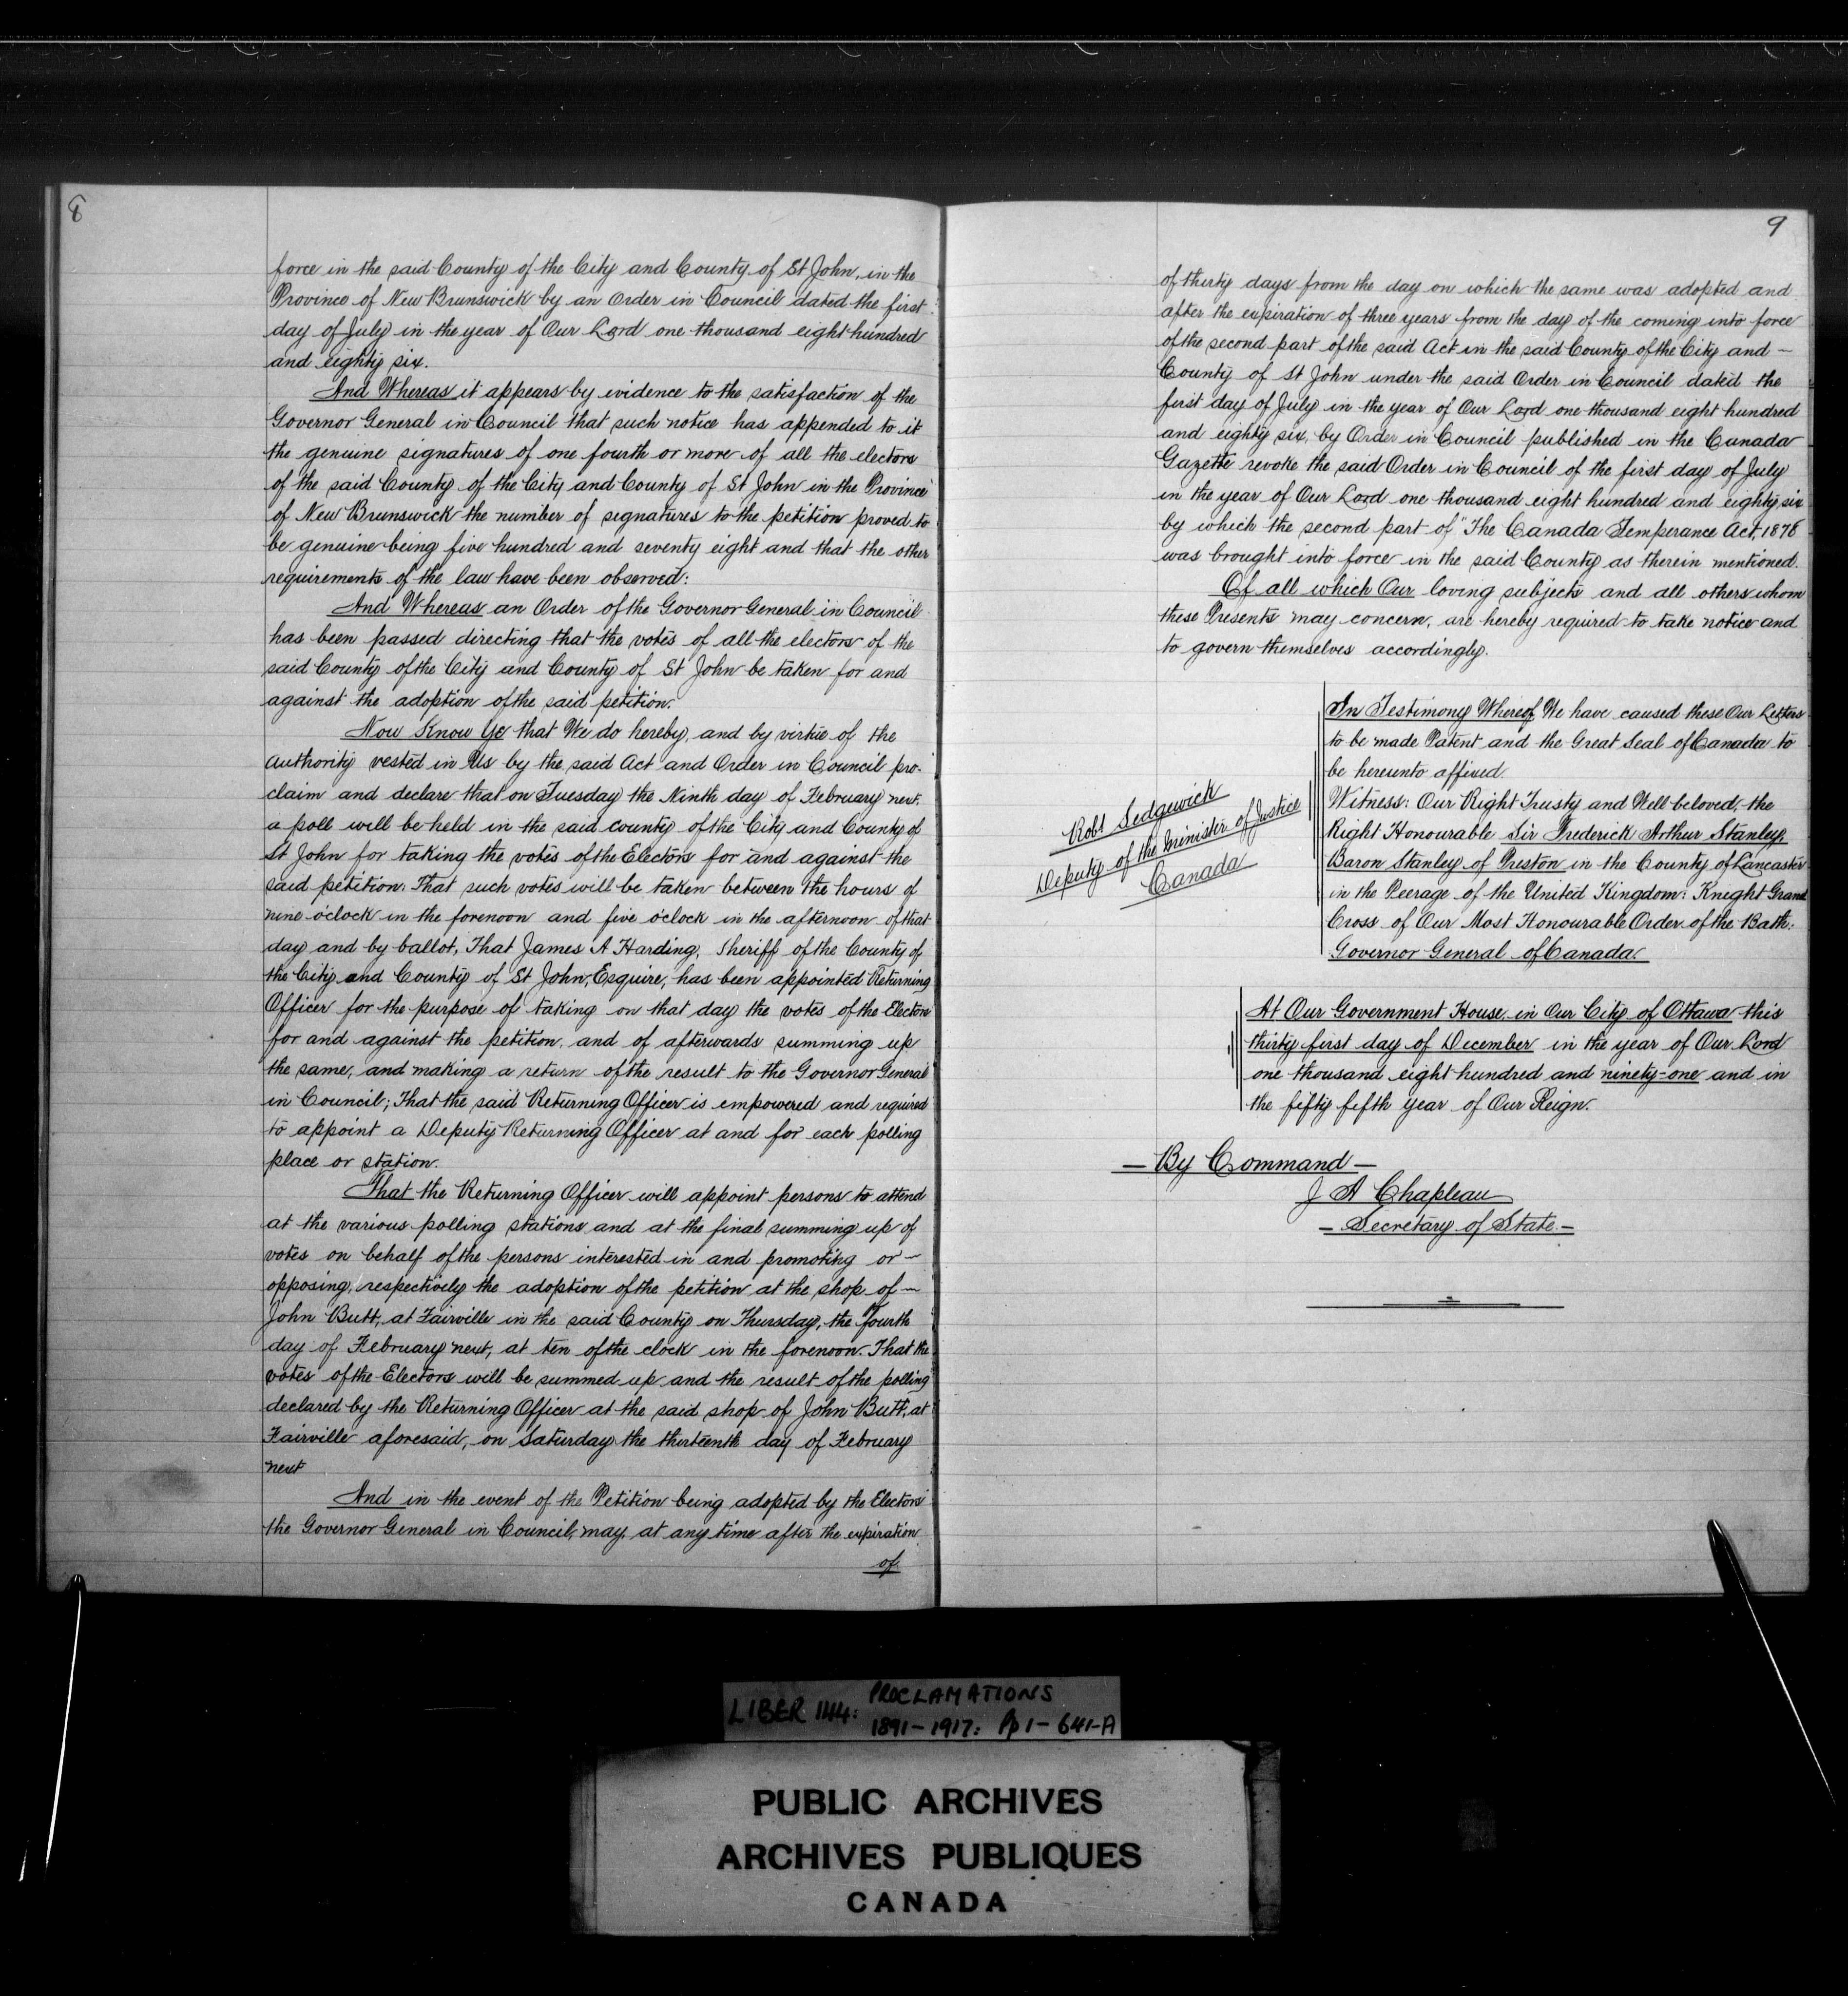 8
force in the said County of the City and County of St John, in the
Province of New Brunswick by an Order in Council dated the first
day of July in the year of Our Lord one thousand eight hundred
and eighty six.
And Whereas it appears by evidence to the satisfaction of the
Governor General in Council that such notice has appended to it
the genuine signatures of one fourth or more of all the electors
of the said County of the City and County of St John in the Province
of New Brunswick the number of signatures to the petition proved to
be genuine being five hundred and seventy eight and that the other
requirements of the law have been observed:
And Whereas an Order of the Governor General in Council
has been passed directing that the votes of all the electors of the
said County of the City and County of St John be taken for and
against the adoption of the said petition.
Now Know Ye that We do hereby, and by virtue of the
authority vested in Us by the said Act and Order in Council pro-
claim and declare that on Tuesday the Ninth day of February next.
a poll will be held in the said county of the City and County of
St John for taking the votes of the Electors for and against the
said petition. That such votes will be taken between the hours of
nine o'clock in the forenoon and five o'clock in the afternoon of that
day and by ballot, That James A Harding, Sheriff of the County of
the City and County of St John, Esquire, has been appointed Returning
Officer for the purpose of taking on that day the votes of the Electors
for and against the petition, and of afterwards summing up
the same, and making a return of the result to the Governor General
in Council; That the said Returning Officer is empowered and required
to appoint a Deputy Returning Officer at and for each polling
place or station.
That the Returning Officer will appoint persons to attend
at the various polling stations and at the final summing up of
votes on behalf of the persons interested in and promoting or —
opposing, respectively the adoption of the petition at the shop of —
John Butt, at Fairville in the said County on Thursday, the fourth
day of February next, at ten of the clock in the forenoon. That the
votes of the Electors will be summed up and the result of the polling
declared by the Returning Officer at the said shop of John Butt, at
Fairville aforesaid, on Saturday the thirteenth day of February
next
And in the event of the Petition being adopted by the Electors
the Governor General in Council, may, at any time after the expiration
of
9
of thirty days from the day on which the same was adopted and
after the expiration of three years from the day of the coming into force
of the second part of the said Act in the said County of the City and —
County of St John under the said Order in Council dated the
first day of July in the year of Our Lord one thousand eight hundred
and eighty six, by Order in Council published in the Canada
Gazette revoke the said Order in Council of the first day of July
in the year of Our Lord one thousand eight hundred and eighty six
by which the second part of "The Canada Temperance Act, 1878
was brought into force in the said County as therein mentioned.
Of all which Our loving subjects and all others whom
these Presents may concern, are hereby required to take notice and
to govern themselves accordingly.
In Testimony Whereof We have caused these Our Letters
to be made Patent and the Great Seal of Canada to
be hereunto affixed.
Witness: Our Right Trusty and Well beloved, the
Right Honourable Sir Frederick Arthur Stanley,
Baron Stanley of Preston in the County of Lancaster
in the Peerage of the United Kingdom: Knight Grand
Cross of Our Most Honourable Order of the Bath:
Governor General of Canada.
Robt Sedgewick
Deputy of the Minister of Justice
Canada
At Our Government House, in Our City of Ottawa this
thirty first day of December in the year of Our Lord
one thousand eight hundred and ninety-one and in
the fifty fifth year of Our Reign.
— By Command —
J A Chapleau
— Secretary of State. —
LIBER 144: PROCLAMATIONS
1891-1917: Pp 1-641-A
PUBLIC ARCHIVES
ARCHIVES PUBLIQUES
CANADA